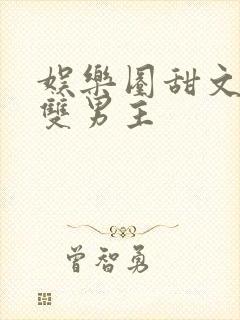 娛樂圈甜文
雙男主
曾智勇